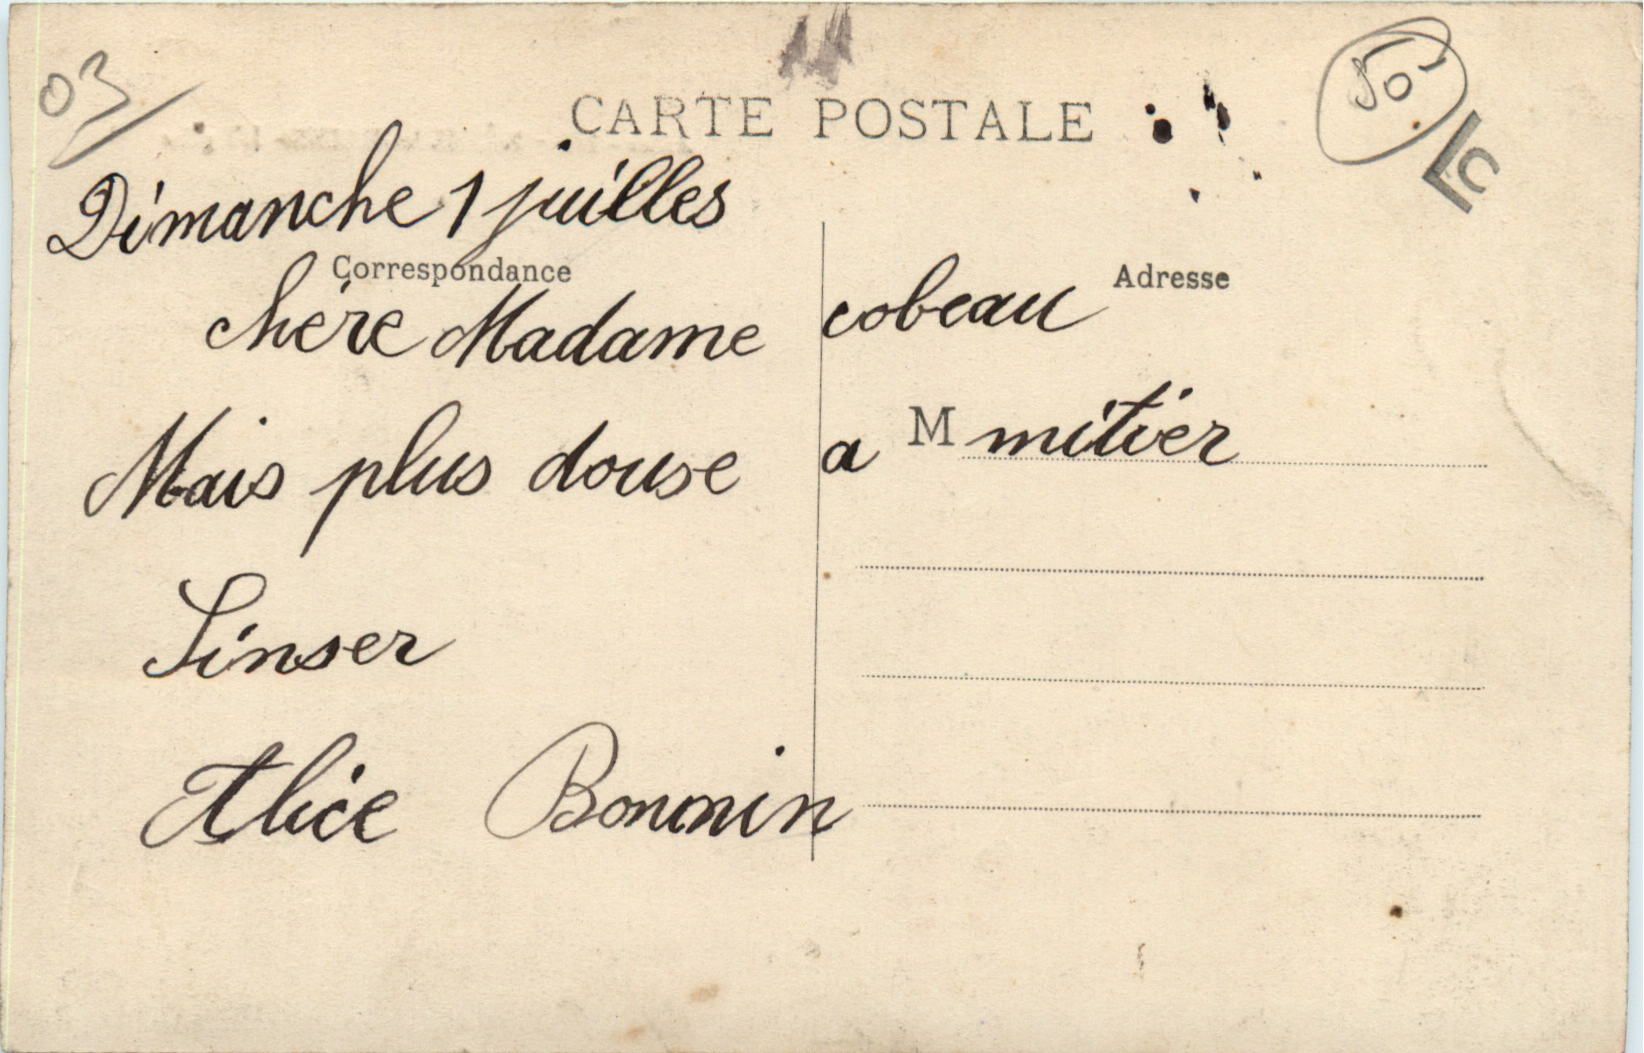 03
50
CARTE POSTALE
Dimanche 1 juilles
Correspondance
Adresse
chère Madame cobeau
Mais plus douse a M mitier
Sinser
Alice Bonnin